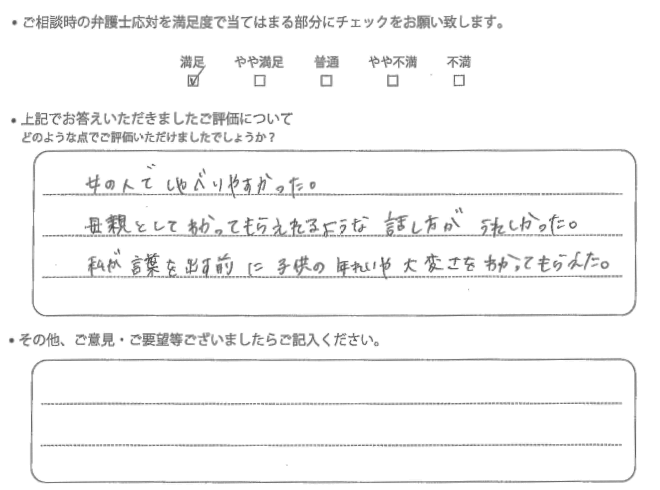 • ご相談時の弁護士応対を満足度で当てはまる部分にチェックをお願い致します。
満足 やや満足 普通 やや不満 不満
• 上記でお答えいただきましたご評価について
どのような点でご評価いただけましたでしょうか？
女の人でしゃべりやすかった。
母親としてわかってもらえれるような話し方がうれしかった。
私が言葉を出す前に子供の年れいや大変さをわかってもらえた。
• その他、ご意見・ご要望等ございましたらご記入ください。